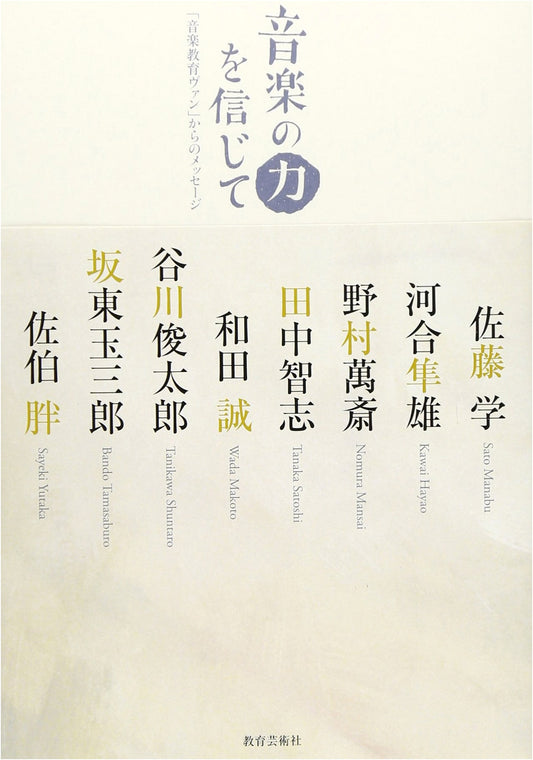 音楽の力
を信じて
「音楽教育ヴァン」からのメッセージ
佐藤 学
Sato Manabu
河合隼雄
Kawai Hayao
野村萬斎
Nomura Mansai
田中智志
Tanaka Satoshi
和田 誠
Wada Makoto
谷川俊太郎
Tanikawa Shuntaro
坂東玉三郎
Bando Tamasaburo
佐伯 胖
Sayeki Yutaka
教育芸術社